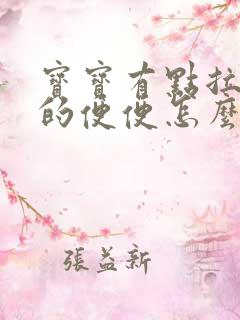 寶寶有點拉
的便便怎麼
張益新